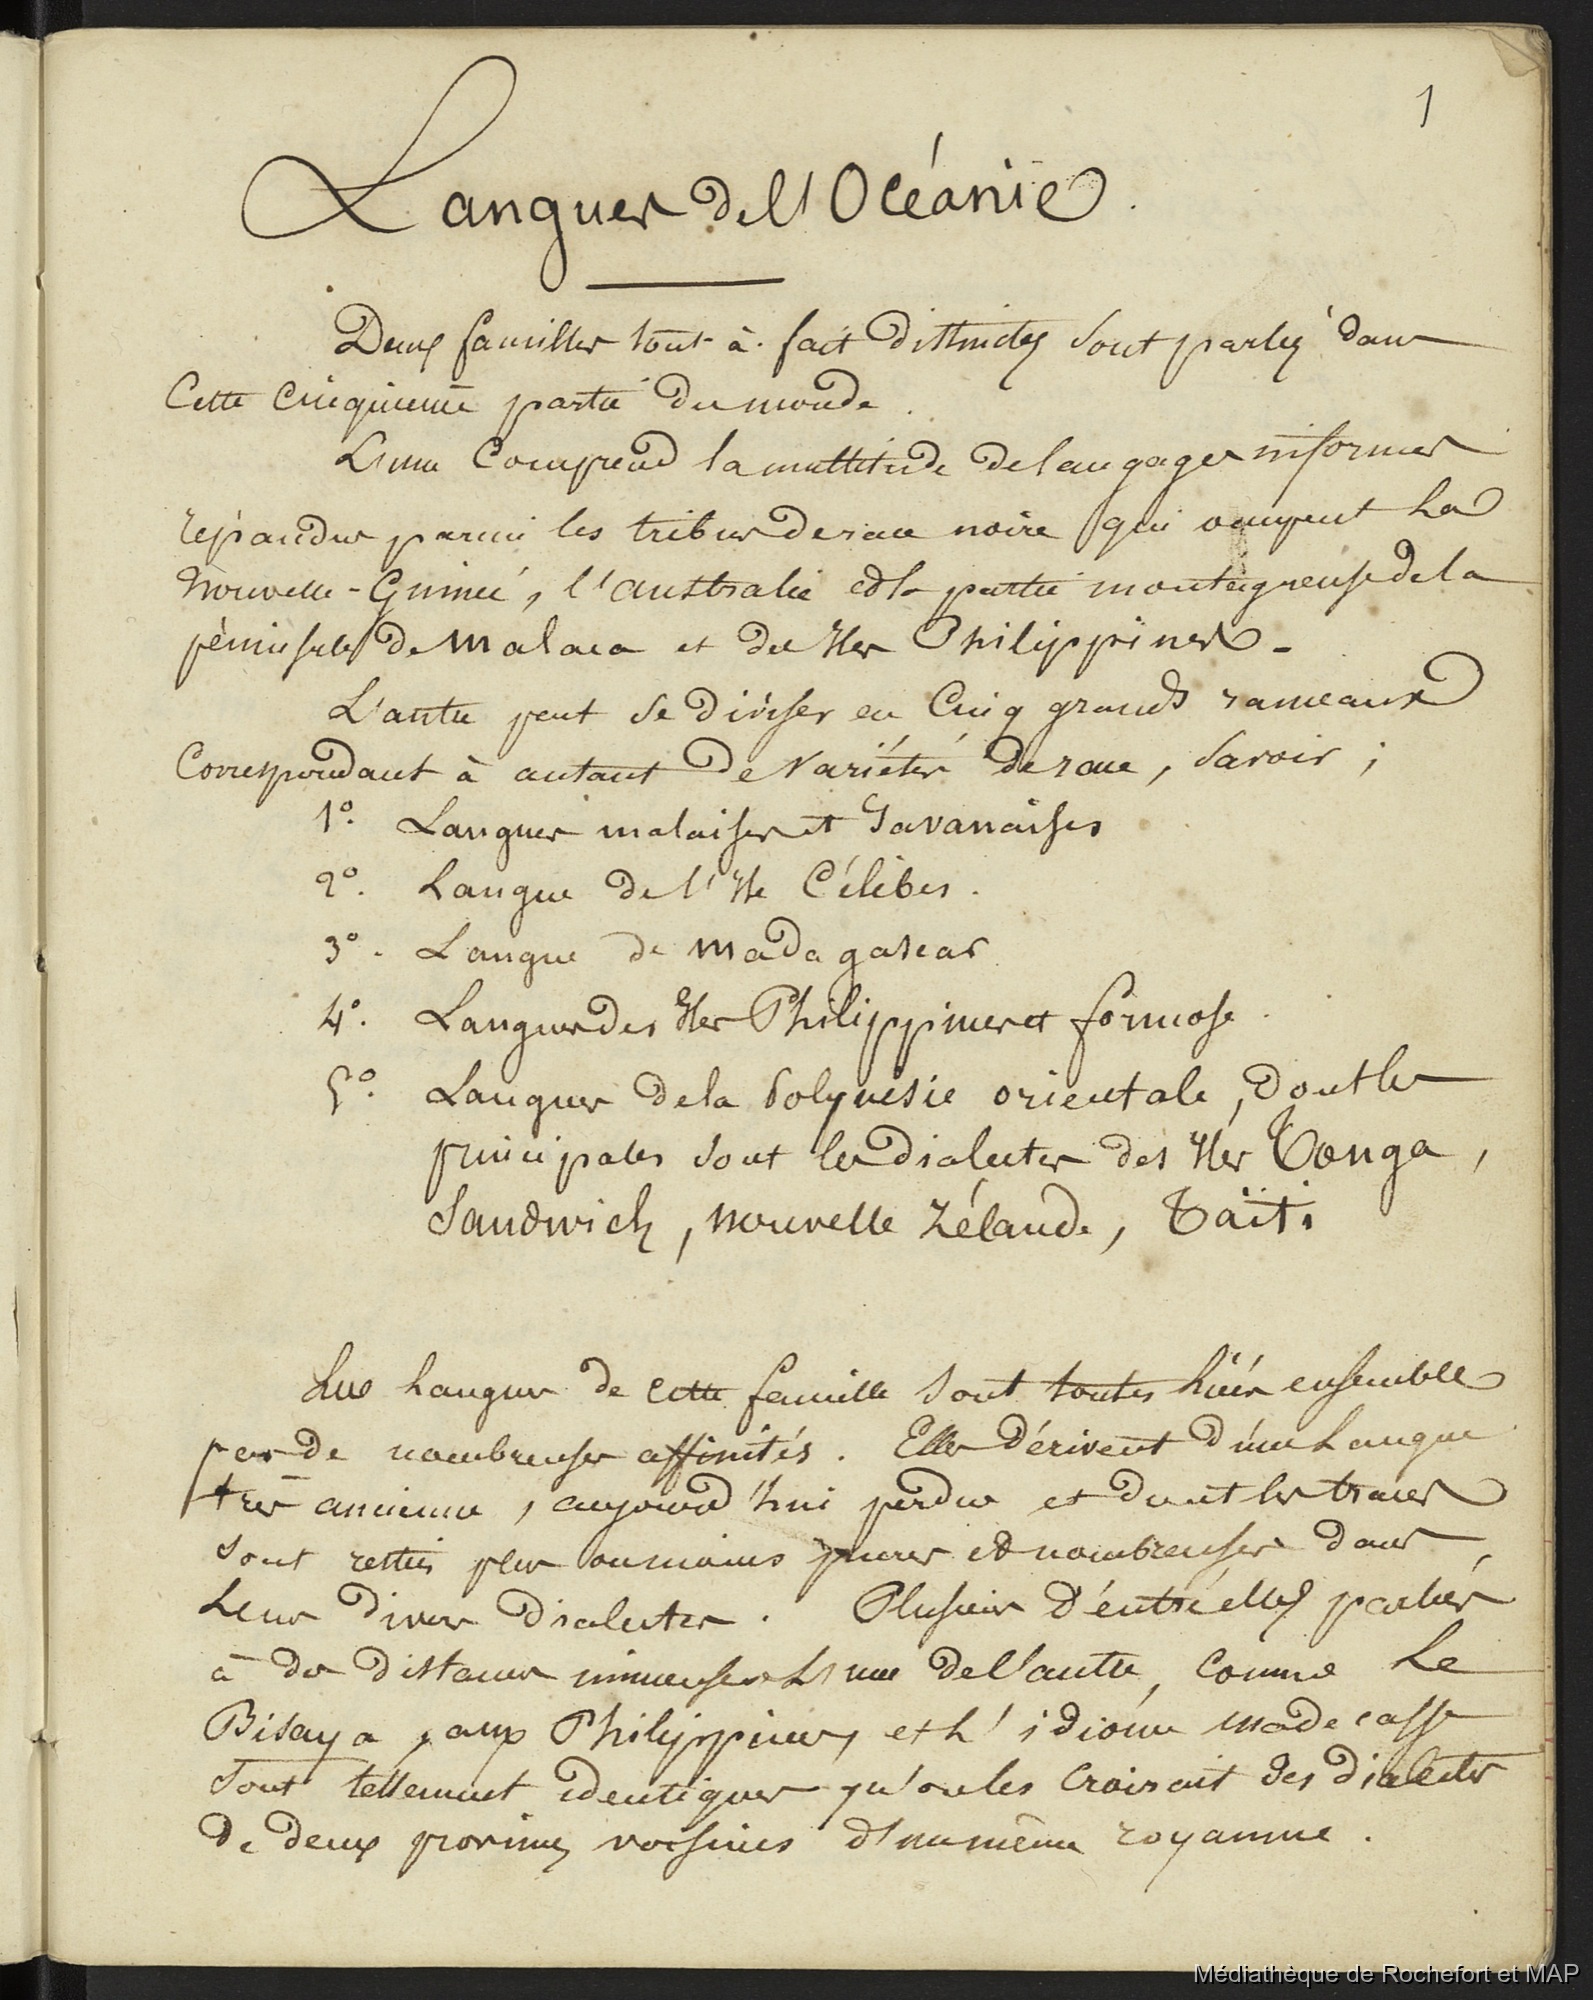 1
Langues de l'Océanie.
Deux familles tout-à-fait distinctes sont parlées dans
Cette Cinquième partie du monde.
L'une Comprend la multitude de langages informes
répandus parmi les tribus de race noire qui occupent La
Nouvelle-Guinée, l'australie et la partie montagneuse de la
péninsule de Malaca et des Iles Philippines.
L'autre peut se diviser en Cinq grands rameaux
Correspondant à autant de variétés de race, Savoir ;
1º. Langues malaises et Javanaises
2º. Langue de l'Ile Célèbes.
3º. Langue de Madagascar
4º. Langues des Iles Philippines et formose.
5º. Langues de la Polynésie orientale, dont les
principales sont les dialectes des Iles Tonga,
Sandwich, Nouvelle Zélande, Taïti.
Les Langues de cette famille sont toutes liées ensemble
par de nombreuses affinités. Elles dérivent d'une Langue
très ancienne, aujourd'hui perdue et dont les traces
sont restées plus ou moins pures et nombreuses dans
Leurs divers dialectes. Plusieurs d'entre elles parlées
à des distances immenses L'une de l'autre, comme Le
Bisaya, aux Philippines, et L'idiome madecasse
sont tellement identiques qu'on les croirait des dialectes
de deux provinces voisines d'un même royaume.
Médiathèque de Rochefort et MAP